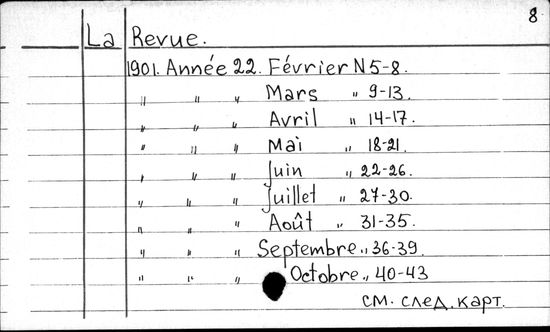 8
La Revue.
1901. Année 22. Février N 5-8.
" " " Mars " 9-13.
" " " Avril " 14-17.
" " " Mai " 18-21.
" " " Juin " 22-26.
" " " Juillet " 27-30.
" " " Août " 31-35.
" " " Septembre " 36-39.
" " " Octobre " 40-43
см. след. карт.